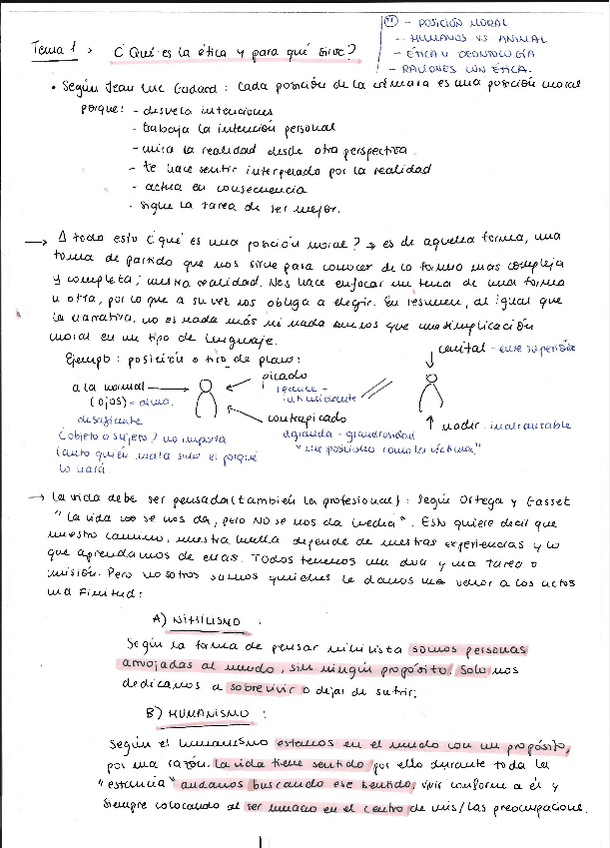 - POSICIÓN MORAL
- HUMANOS VS ANIMAL
- ÉTICA Y DEONTOLOGÍA
- RAZONES CON ÉTICA.
Tema 1 ¿Qué es la ética y para qué sirve?
• Según Jean Luc Godard: cada posición de la cámara es una posición moral
porque: - desvela intenciones
- trabaja la intención personal
- mira la realidad desde otra perspectiva.
- te hace sentir interpelado por la realidad
- actúa en consecuencia
- sigue la tarea de ser mejor.
→ A todo esto ¿qué es una posición moral? → es de aquella forma, una
toma de partido que nos sirve para conocer de la forma más compleja
y completa; nuestra realidad. Nos hace enfocar un tema de una forma
u otra, por lo que a su vez nos obliga a elegir. En resumen, al igual que
la narrativa. no es nada más ni nada menos que una simplificación
moral en un tipo de lenguaje.
Ejemplo: posición o tiro de plano:
cenital - ente superior
a la normal
picado
(ojos) - alma.
reduce -
intimidante
desafiante
contrapicado
nadir -
(objeto o sujeto) no importa
agranda - grandiosidad
tanto quién mata sino el porqué
"me posiciono como la víctima"
lo hará.
→ La vida debe ser pensada (también la profesional): Según Ortega y Gasset
"la vida se nos da, pero NO se nos da hecha". Esto quiere decir que
nuestro camino, nuestra huella depende de nuestras experiencias y lo
que aprendamos de ellas. Todos tenemos un don y una tarea o
misión. Pero nosotros somos quienes le damos un valor a los actos
una finitud:
A) NIHILISMO:
Según la forma de pensar nihilista somos personas
arrojadas al mundo, sin ningún propósito. Solo nos
dedicamos a sobrevivir o dejar de sufrir;
B) HUMANISMO:
Según el humanismo estamos en el mundo con un propósito,
por una razón. La vida tiene sentido por ello durante toda la
"estancia" andamos buscando ese sentido, vivir conforme a él y
siempre colocando al ser humano en el centro de mis/las preocupaciones.